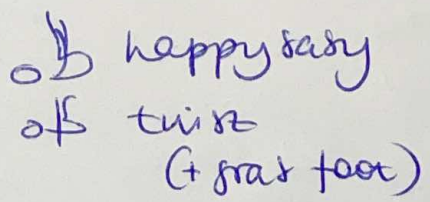 happy baby
twist
(+ grab foot)